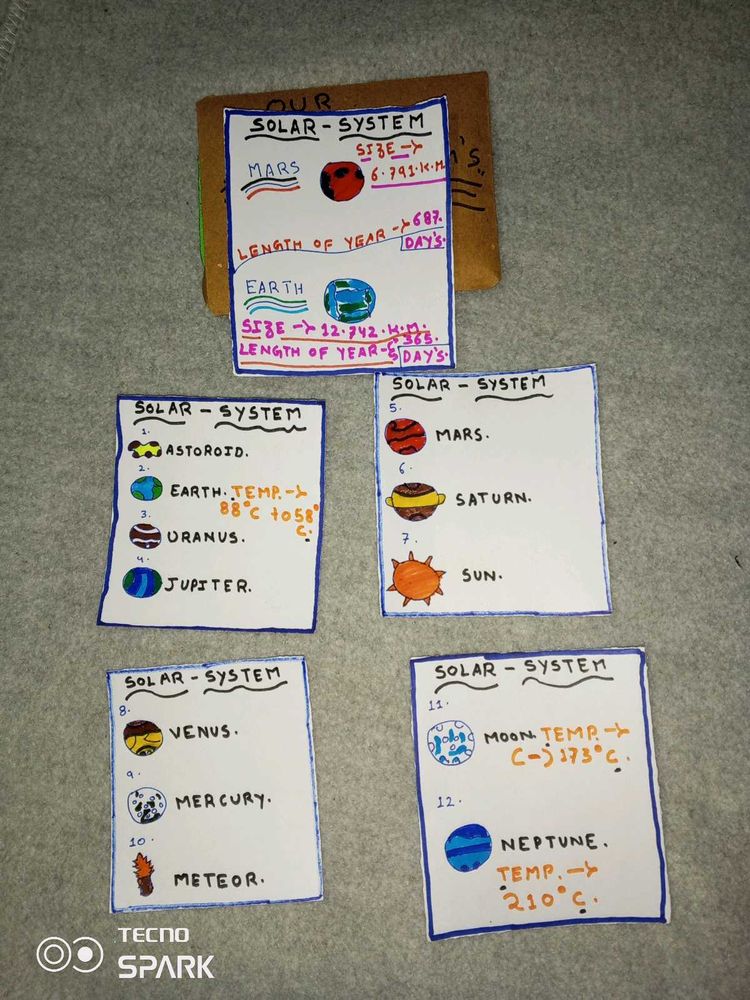 OUR
SOLAR-SYSTEM
MARS
SIZE →
6.791.K.M
LENGTH OF YEAR → 687.
DAY'S.
EARTH
SIZE → 12.742.K.M.
LENGTH OF YEAR → 365.
DAY'S.
SOLAR - SYSTEM
1.
ASTOROID.
2.
EARTH. TEMP. →
88°C to 58°
C.
3.
URANUS.
4.
JUPITER.
SOLAR - SYSTEM
5.
MARS.
6.
SATURN.
7.
SUN.
SOLAR - SYSTEM
8.
VENUS.
9.
MERCURY.
10.
METEOR.
SOLAR - SYSTEM
11.
MOON. TEMP. →
C→173°C.
12.
NEPTUNE.
TEMP. →
210°C.
TECNO
SPARK